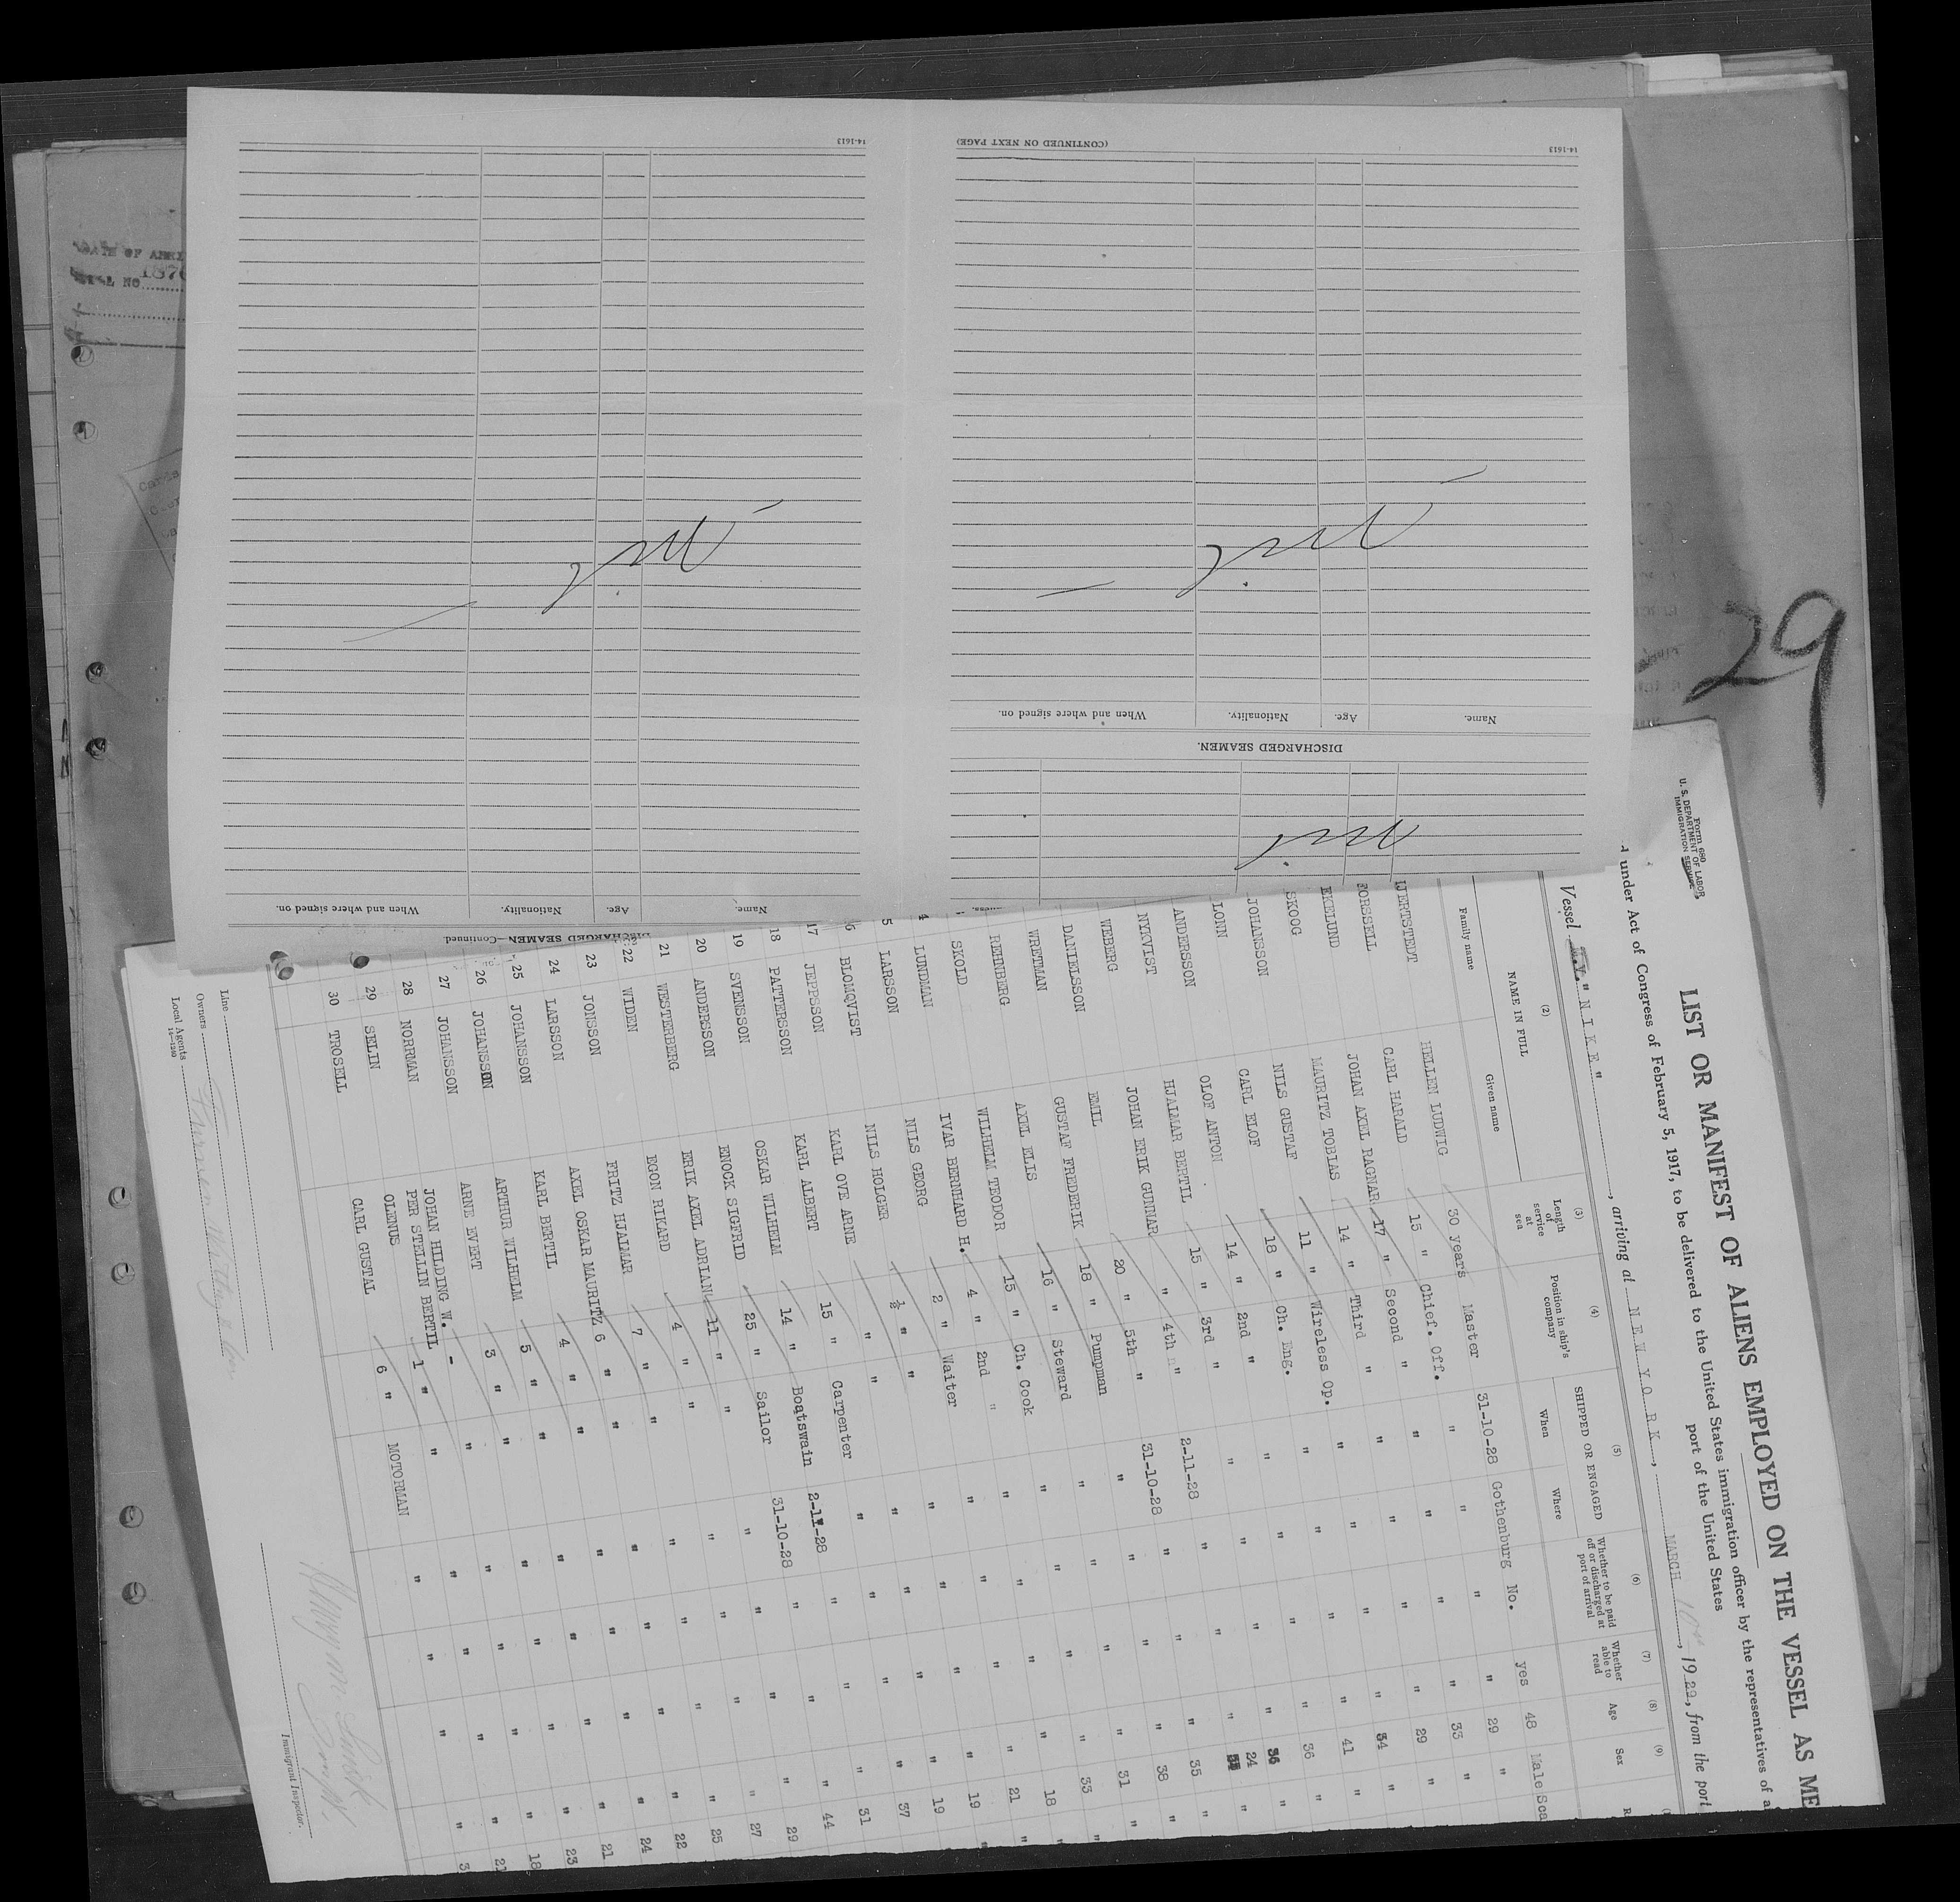 14-1613
(CONTINUED ON NEXT PAGE)
14-1613
Nil
Nil
When and where signed on. Nationality. Age. Name.
DISCHARGED SEAMEN.
Nil
When and where signed on. Nationality. Age. Name.
DISCHARGED SEAMEN—Continued.
1876
29
Form 680
U. S. DEPARTMENT OF LABOR
IMMIGRATION SERVICE
LIST OR MANIFEST OF ALIENS EMPLOYED ON THE VESSEL AS ME
under Act of Congress of February 5, 1917, to be delivered to the United States immigration officer by the representatives of a
port of the United States
Vessel M.V. "NIKE", arriving at NEW YORK, MARCH, 1929, from the port
(2) (3) (4) (5) (6) (7) (8) (9)
NAME IN FULL
Family name Given name
Length of service at sea
Position in ship's company
SHIPPED OR ENGAGED
When Where
Whether to be paid off or discharged at port of arrival
Whether able to read
Age
Sex
HELLEN LUDWIG 30 years Master 31-10-28 Gothenburg No. yes 48 Male Sca
FORSSELL CARL HARALD 15 " Chief. Off. " " " " 29 "
EKELUND JOHAN AXEL RAGNAR 17 " Second " " " " " 33 "
SKOOG MAURITZ TOBIAS 14 " Third " " " " " 29 "
JOHANSSON NILS GUSTAF 11 " Wireless Op. " " " " 34 "
LONN CARL ELOF 18 " Ch. Eng. " " " " 41 "
ANDERSSON OLOF ANTON 14 " 2nd " " " " " 36 "
NYKVIST HJALMAR BERTIL 15 " 3rd " " " " " 36 "
WEBERG JOHAN ERIK GUNNAR " 4th " 2-11-28 " " " 24 "
DANIELSSON EMIL 20 " 5th " 31-10-28 " " " 35 "
WRETMAN GUSTAF FREDERIK 18 " Pumpman " " " " 38 "
REHNBERG AXEL ELIS 16 " Steward " " " " 31 "
SKOLD WILHELM TEODOR 15 " Ch. Cook " " " " 33 "
LUNDMAN IVAR BERNHARD H. 4 " 2nd " " " " " 18 "
5 LARSSON NILS GEORG 2 " Waiter " " " " 21 "
6 BLOMQVIST NILS HOLGER ½ " " " " " " 19 "
17 JEPPSON KARL OVE ARNE " " " " " " 19
18 PATTERSSON KARL ALBERT 15 " Carpenter 2-11-28 " " " 37
19 SVENSSON OSKAR WILHELM 14 " Boatswain 31-10-28 " " " 31
20 ANDERSSON ENOCK SIGFRID 25 " Sailor " " " " 44
21 WESTERBERG ERIK AXEL ADRIAN 11 " " " " " " 29
22 WIDEN EGON RIKARD 4 " " " " " " 27
23 JONSSON FRITZ HJALMAR 7 " " " " " " 25
24 LARSSON AXEL OSKAR MAURITZ 6 " " " " " " 22
25 JOHANSSON KARL BERTIL 4 " " " " " " 24
26 JOHANSSON ARTHUR WILHELM 5 " " " " " " 21
27 JOHANSSON ARNE EVERT 3 " " " " " " 23
28 NORRMAN JOHAN HILDING W. - " " " " " 18
29 SELIN PER STELLIN BERTIL 1 " " " " " " 21
30 TROSELL OLENUS CARL GUSTAL 6 " MOTORMAN " " " " 3
Line
Owners
Local Agents
14-1240
Immigrant Inspector.